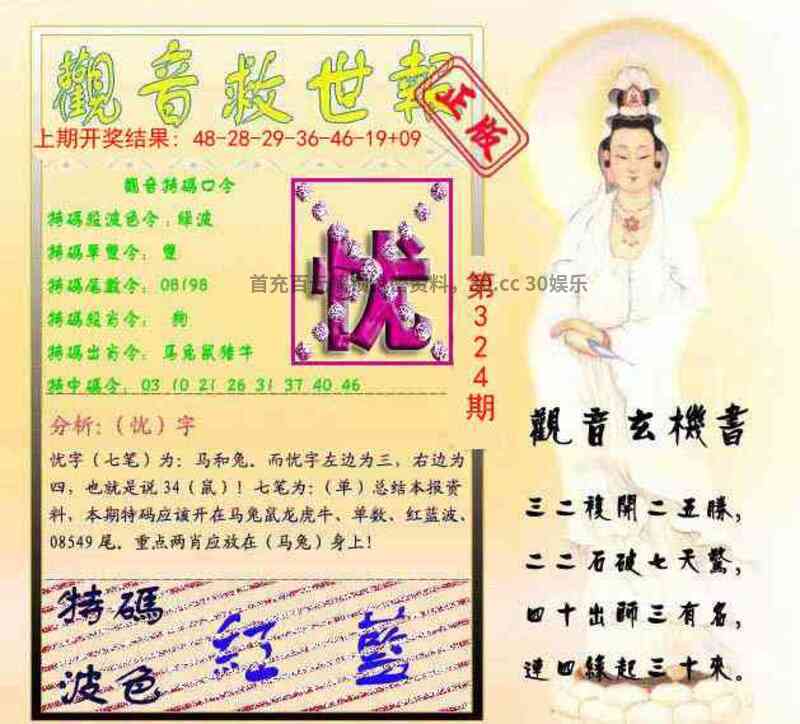 觀音救世報
正版
上期开奖结果：48-28-29-36-46-19+09
觀音特碼口令
特碼殺波色令：綠波
特碼單雙令：雙
特碼尾數令：08198
特碼殺肖令：狗
特碼出肖令：马兔鼠猪牛
特中碼令：03 10 21 26 31 37 40 46
忧
第324期
首充百 资料， .cc 30娱乐
分析：（忧）字
忧字（七笔）为：马和兔．而忧字左边为三，右边为
四，也就是说34（鼠）！七笔为：（单）总结本报资
料，本期特码应该开在马兔鼠龙虎牛、单数、红蓝波、
08549尾．重点两肖应放在（马兔）身上！
特碼
波色
紅 藍
觀音玄機書
三二複開二五勝，
二二石破七天驚，
四十出師三有名，
連四緣起三十來。